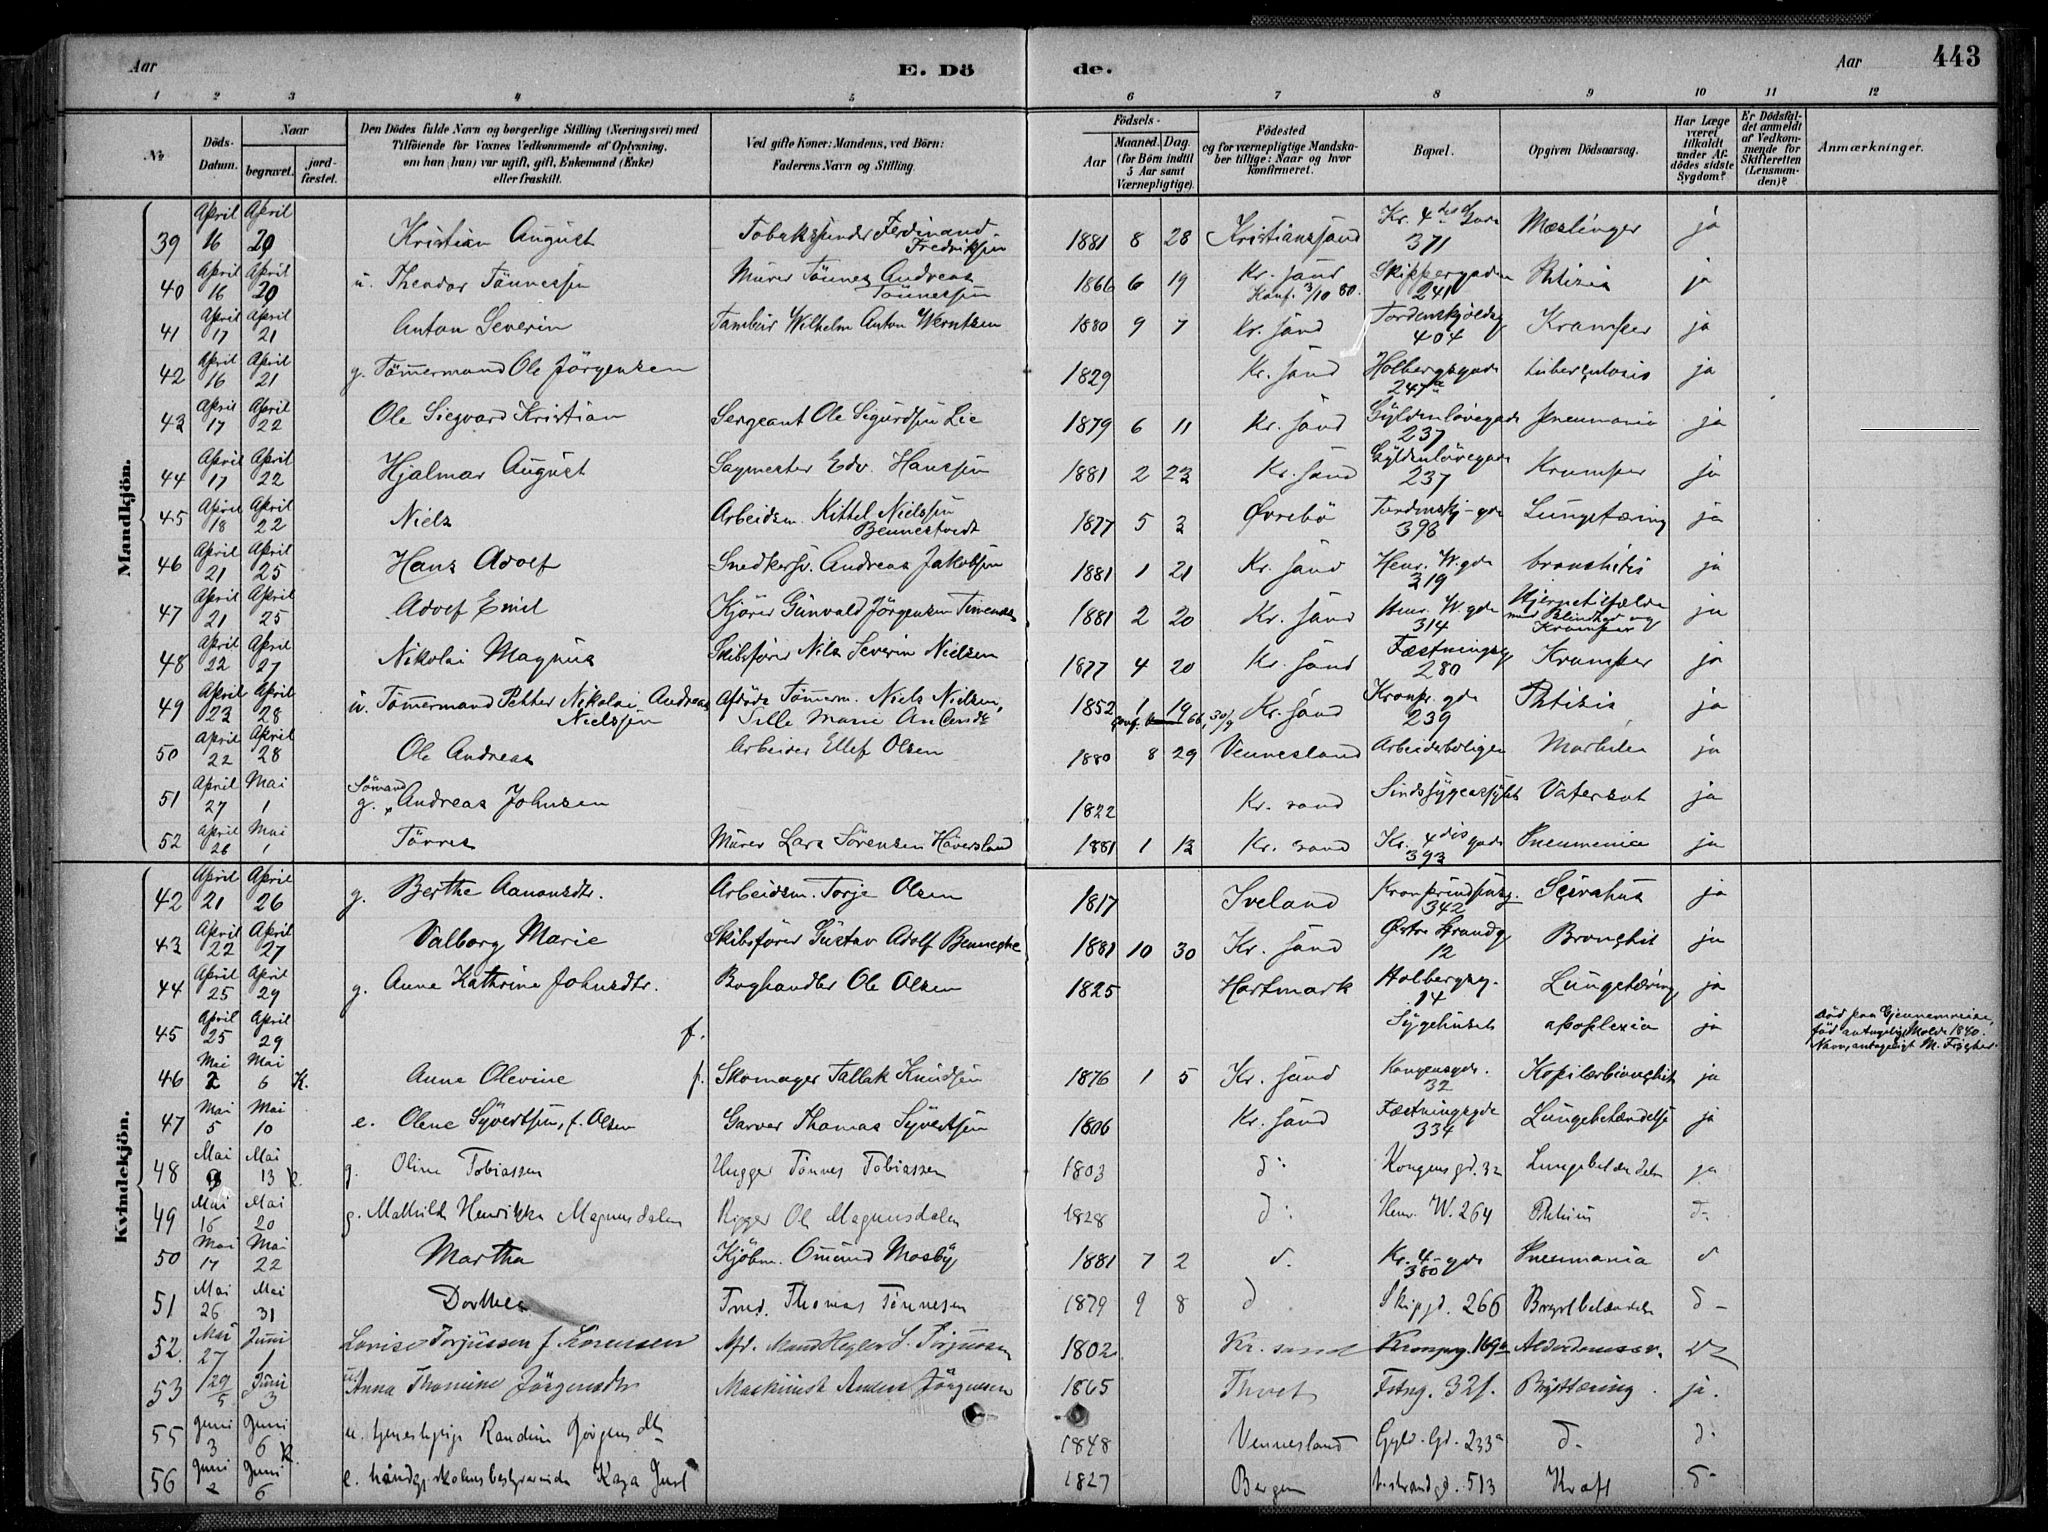 Aar E. Dö de. Aar 443
1 2 3 4 5 6 7 8 9 10 11 12
No. Döds-Datum. Naar begravet. jordfæstet. Den Dödes fulde Navn og borgerlige Stilling (Næringsvei) med Tilföiende for Voxnes Vedkommende af Oplysning, om han (hun) var ugift, gift, Enkemand (Enke) eller fraskilt. Ved gifte Koner: Mandens, ved Börn: Faderens Navn og Stilling. Födsels- Aar Maaned. Dag. (for Börn indtil 5 Aar samt Værnepligtige). Födested og for værnepligtige Mandskaber tillige: Naar og hvor konfirmeret. Bopæl. Opgiven Dödsaarsag. Har Læge været tilkaldt under Afdödes sidste Sygdom? Er Dödsfaldet anmeldt af Vedkommende for Skifteretten (Lensmanden)? Anmærkninger.
Mandkjön.
39 April 16 April 20 Kristian August Tobakspinder Ferdinand Fredriksen 1881 8 28 Kristianssand Kr. 4des Gade 371 Mæslinger ja
40 April 16 April 20 u. Theodor Tönnessen Murer Tönnes Andreas Tönnessen 1866 6 19 Kr. sand Konf. 3/10 80. Skippergaden 241 Phtisis ja
41 April 17 April 21 Anton Severin Tambur Wilhelm Anton Werntzen 1880 9 7 Kr. sand Tordenskjoldsg 404 Kramper ja
42 April 16 April 21 g. Tömmermand Ole Jörgensen 1829 Kr. sand Holbergsgade 247a tuberculosis ja
43 April 17 April 22 Ole Siegvard Kristian Sergeant Ole Sigurdsen Lie 1879 6 11 Kr. sand Gyldenlövegade 237 Pneumonia ja
44 April 17 April 22 Hjalmar August Sagmester Edv. Hanssen 1881 2 23 Kr. sand Gyldenlövegade 237 Kramper ja
45 April 18 April 22 Niels Arbeidsm. Kittel Nielssen Bennestvedt 1877 5 3 Øvrebö Tordenskj-gde 398 Lungetæring ja
46 April 21 April 25 Hans Adolf Snedkersv. Andreas Jakobsen 1881 1 21 Kr. sand Henr. W. gde 319 bronchitis ja
47 April 21 April 25 Adolf Emil Kjörer Gunvald Jörgensen Timenes 1881 2 20 Kr. sand Henr. W. gde 314 Hjernetilfælde med Blindhed og Kramper ja
48 April 22 April 27 Nikolai Magnus Skibsförer Nils Severin Nielsen 1877 4 20 Kr. sand Fæstningsg 280 Kramper ja
49 April 23 April 28 u. Tömmermand Petter Nikolai Andreas Nielssen Afdöde Tömerm. Niels Nielsen, 1852 1 19 Kr. sand Kronpr. gde 239 Phtisis ja
50 April 22 April 28 Ole Andreas Arbeider Ellef Olsen 1880 8 29 Vennesland Arbeiderboligen ja
51 April 27 Mai 1 Sömand g. Andreas Johnsen 1822 Kr. sand Sindssygeasylet Vatersot ja
52 April 26 Mai 1 Tönnes Murer Lars Sörensen Höversland 1881 1 13 Kr. sand Kr. 4des gade 393 Pneumonia ja
Kvindekjön.
42 April 21 April 26 g. Berthe Aanonsdtr. Arbeidsm. Torje Olsen 1817 Iveland Kronprindsensg. 342 ja
43 April 22 April 27 Valborg Marie Skibsförer Gustav Adolf Benneche 1881 10 30 Kr. sand Østre Strandg 12 Bronchit ja
44 April 25 April 29 g. Anne Kathrine Johnsdtr. Boghandler Ole Olsen 1825 Hartmark Holbergsg. 14 Lungetæring ja
45 April 25 April 29 f. Sygehuset apoplexia ja Död paa Gjennemreise, föd antagelig Molde 1840. Navn antageligt M.
46 Mai 2 Mai 6 K. Anne Olevine f. Skomager Tallak Knudsen 1876 1 5 Kr. sand Kongensgde. 32 Kapilærbronchit ja
47 Mai 5 Mai 10 e. Olene Syvertsen, f. Olsen Garver Thomas Syvertsen 1806 Kr. sand Fæstningsgde 334 Lungebetændelse ja
48 Mai 9 Mai 13 K. g. Oline Tobiassen Hugger Tönnes Tobiassen 1803 d: Kongensgd. 32 Lungebetændelse ja
49 Mai 16 Mai 20 g. Mathilde Henrikke Magnusdalen Rigger Ole Magnusdalen 1828 d: Henr. W. 264 Phtisis d-
50 Mai 17 Mai 22 Martha Kjöbm. Omund Mosby 1881 7 2 d. Kr. 4- gde 380 Pneumonia d
51 Mai 26 Mai 31 Dorthea Thomas Tönnesen 1879 9 8 d Skipgd. 266 Brystbetændelse d-
52. Mai 27 Juni 1 Lovise Torjussen f. Lorensen Afd. S. Torjussen 1802 Kr. sand Kronprg. 169a Alderdomssv.
53 29/5 Juni 3 u Anna Thomine Jörgensdtr Maskinist Anders Jörgensen 1865 Thvet Fstng. 321. Brysttæring ja.
55 Juni 3 Juni 6 K. u. tjenestepige Randine Jörgensdtr 1848 Vennesland Gyld. Gd. 233a d- d-
56 Juni 2 Juni 6 e. Kaja Juul 1827 Bergen v. strandgd. 513 Kræft d-